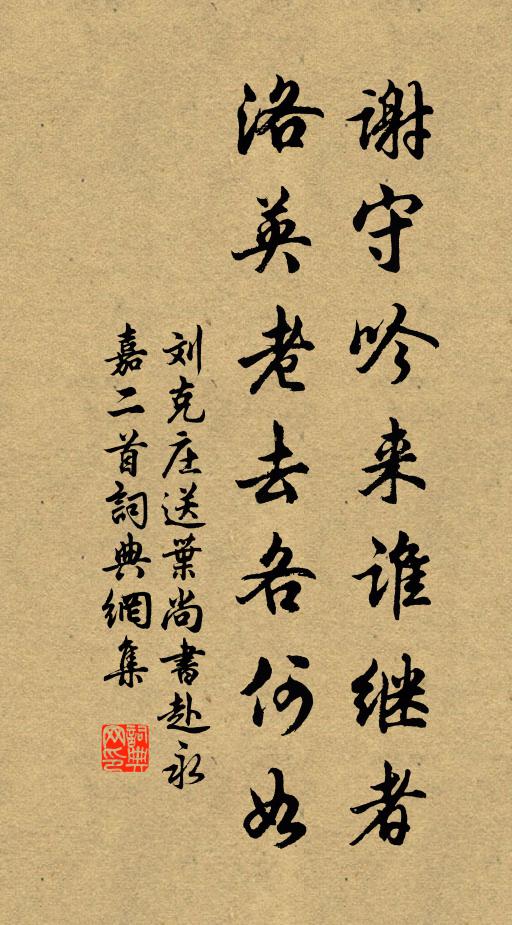 谢守吟来谁继者
洛英老去各何如
刘克庄送葉尚書赴永
嘉二首詞典網集
詞典网印